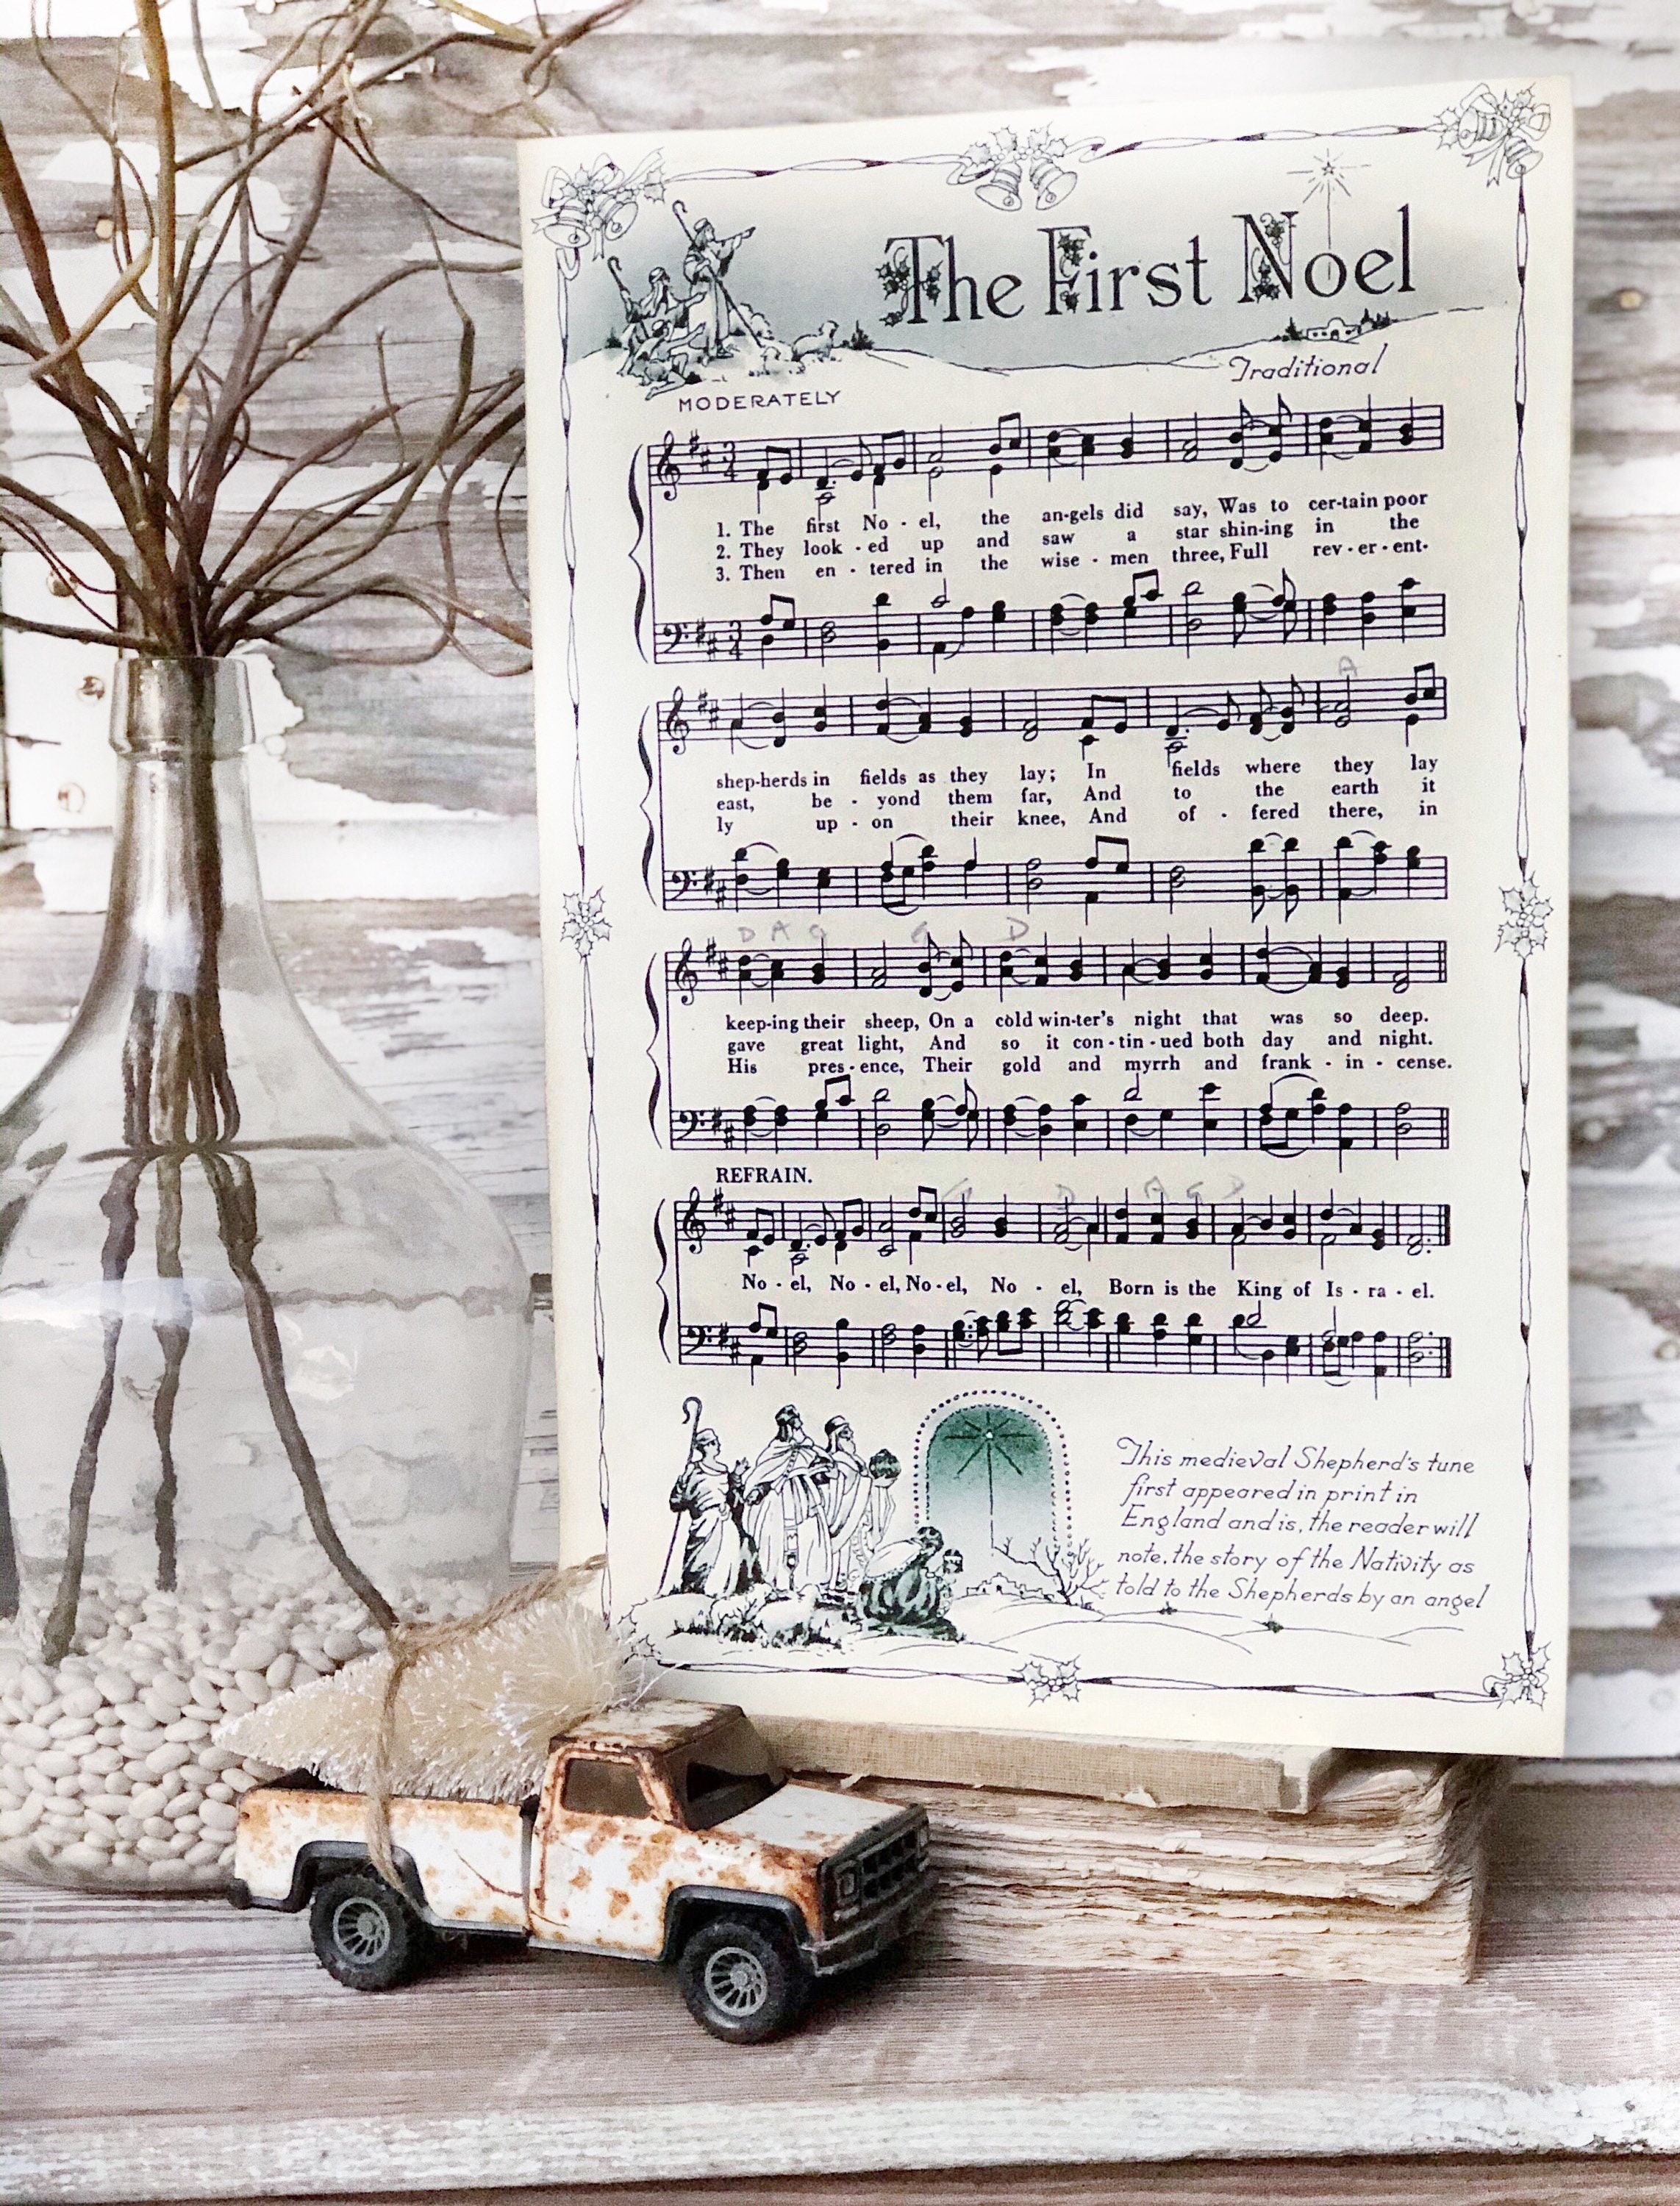 The First Noel
Traditional
MODERATELY
1. The first No - el, the an-gels did say, Was to cer-tain poor
2. They look - ed up and saw a star shin-ing in the
3. Then en - tered in the wise - men three, Full rev - er - ent-
A
shep-herds in fields as they lay; In fields where they lay
east, be - yond them far, And to the earth it
ly up - on their knee, And of - fered there, in
D A G D
keep-ing their sheep, On a cold win-ter's night that was so deep.
gave great light, And so it con - tin - ued both day and night.
His pres - ence, Their gold and myrrh and frank - in - cense.
REFRAIN.
No - el, No - el, No - el, No - el, Born is the King of Is - ra - el.
This medieval Shepherd's tune
first appeared in print in
England and is, the reader will
note, the story of the Nativity as
told to the Shepherds by an angel